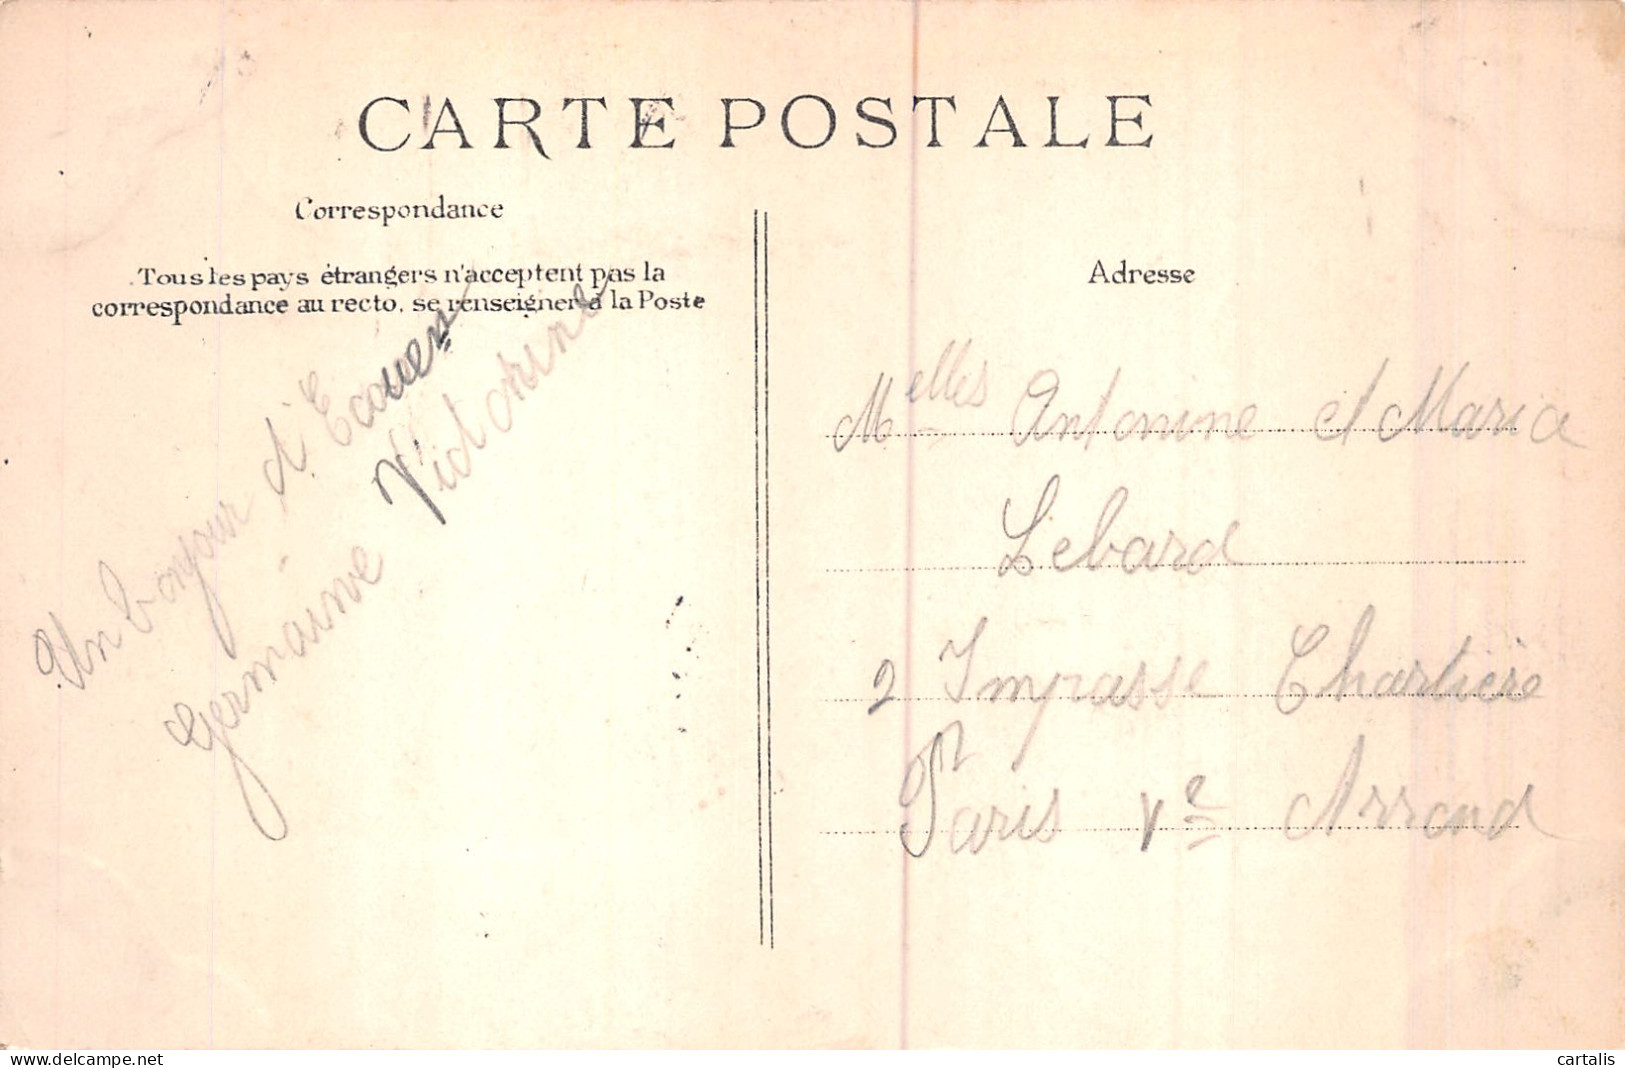 CARTE POSTALE
Correspondance
Tous les pays étrangers n'acceptent pas la
correspondance au recto, se renseigner à la Poste
Un bonjour d'Ecouen
Germaine Victorine
Adresse
Melles Antonine et Maria
Lebard
2 Impasse Chartière
Paris Ve Arrond
https://www.delcampe.net
cartalis